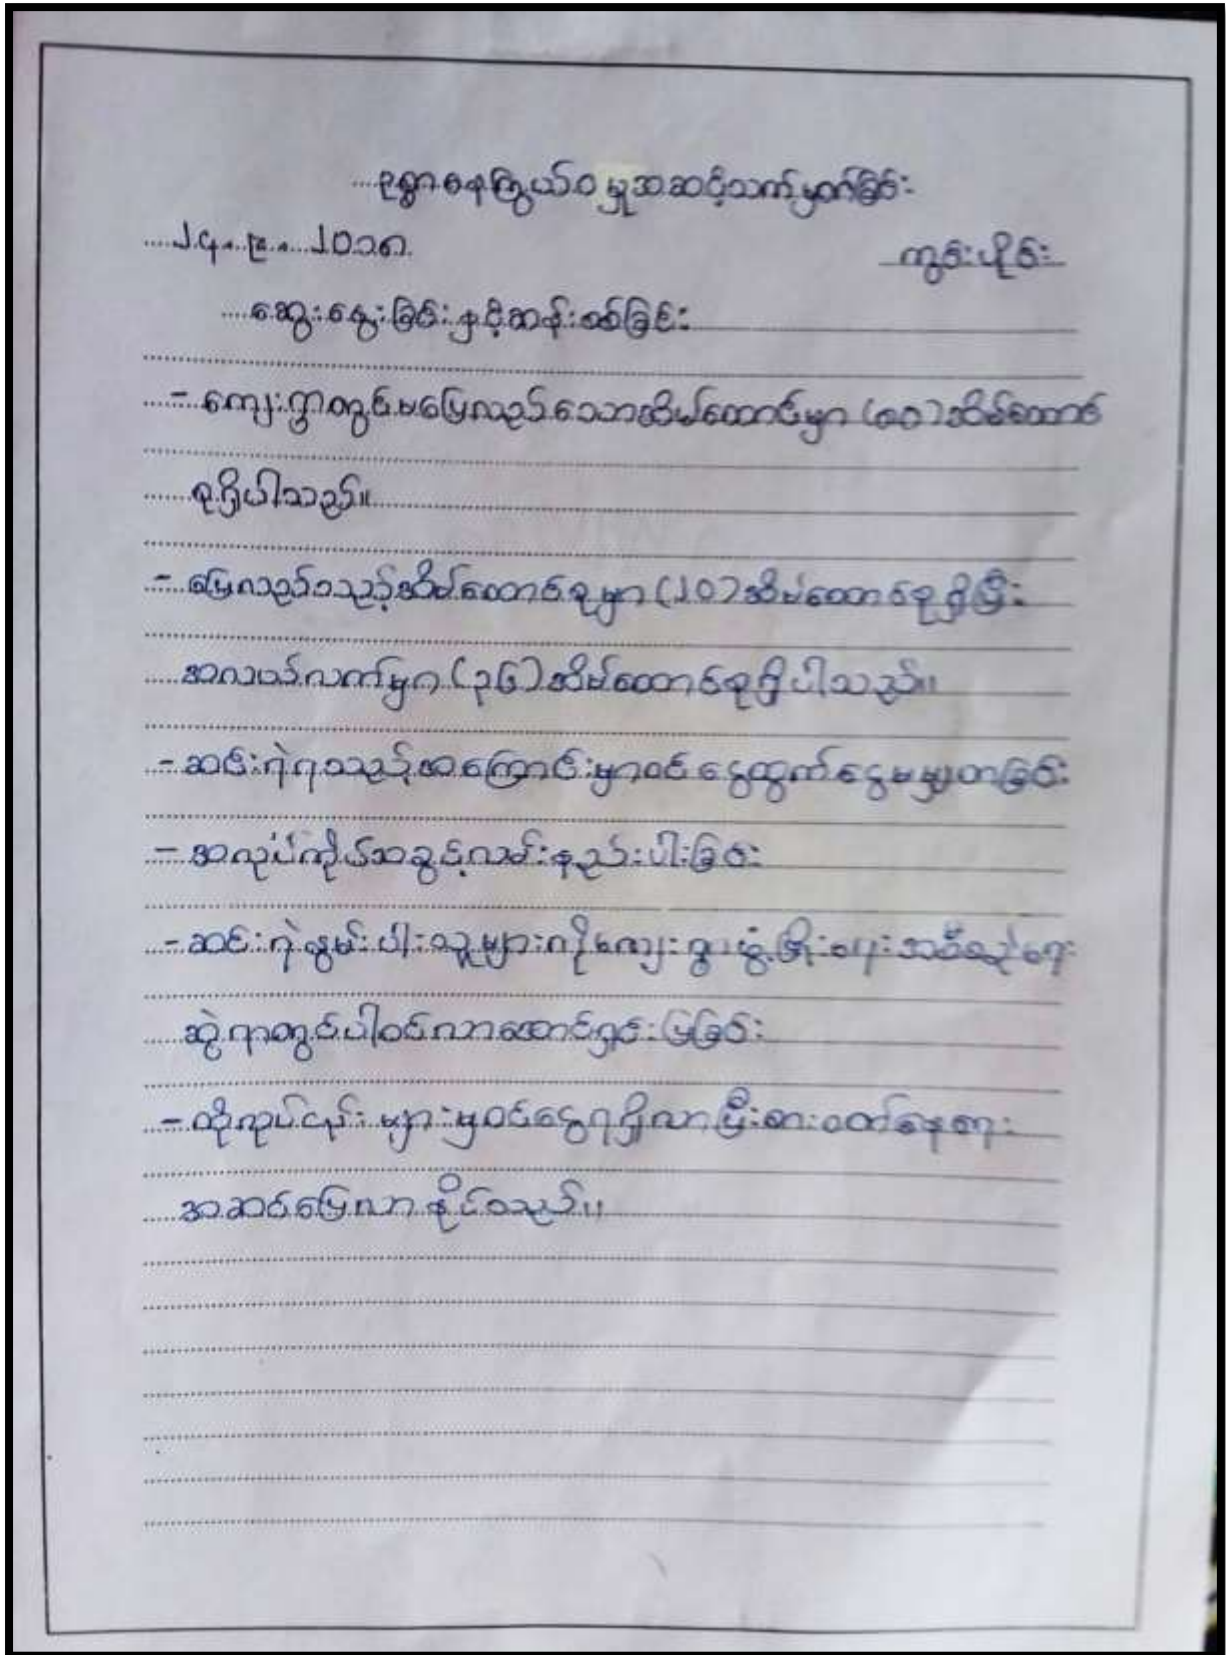 ဥစ္စာနေကြွယ်ဝမှုအဆင့်သတ်မှတ်ခြင်း
၂.၄.၂၀၁၈ ကွင်းပိုင်း
ဆွေးနွေးခြင်းနှင့်ဆန်းစစ်ခြင်း
- ကျေးရွာတွင်မပြေလည်သောအိမ်ထောင်မှာ (၈၀) အိမ်ထောင်
စုရှိပါသည်။
- ပြေလည်သည့်အိမ်ထောင်စုမှာ (၂၀) အိမ်ထောင်စုရှိပြီး
အလယ်လတ်မှာ (၃၆) အိမ်ထောင်စုရှိပါသည်။
- ဆင်းရဲရသည့်အကြောင်းမှာဝင်ငွေထွက်ငွေမမျှတခြင်း
- အလုပ်ကိုယ်အခွင့်လမ်းနည်းပါးခြင်း
- ဆင်းရဲနွမ်းပါးသူများကိုကျေးရွာဖွံ့ဖြိုးရေးအစီစဉ်ရေး
ဆွဲရာတွင်ပါဝင်လာအောင်ရှင်းပြခြင်း
- ထိုလုပ်ငန်းများမှဝင်ငွေရရှိလာပြီးစားဝတ်နေရေး
အဆင်ပြေလာနိုင်သည်။